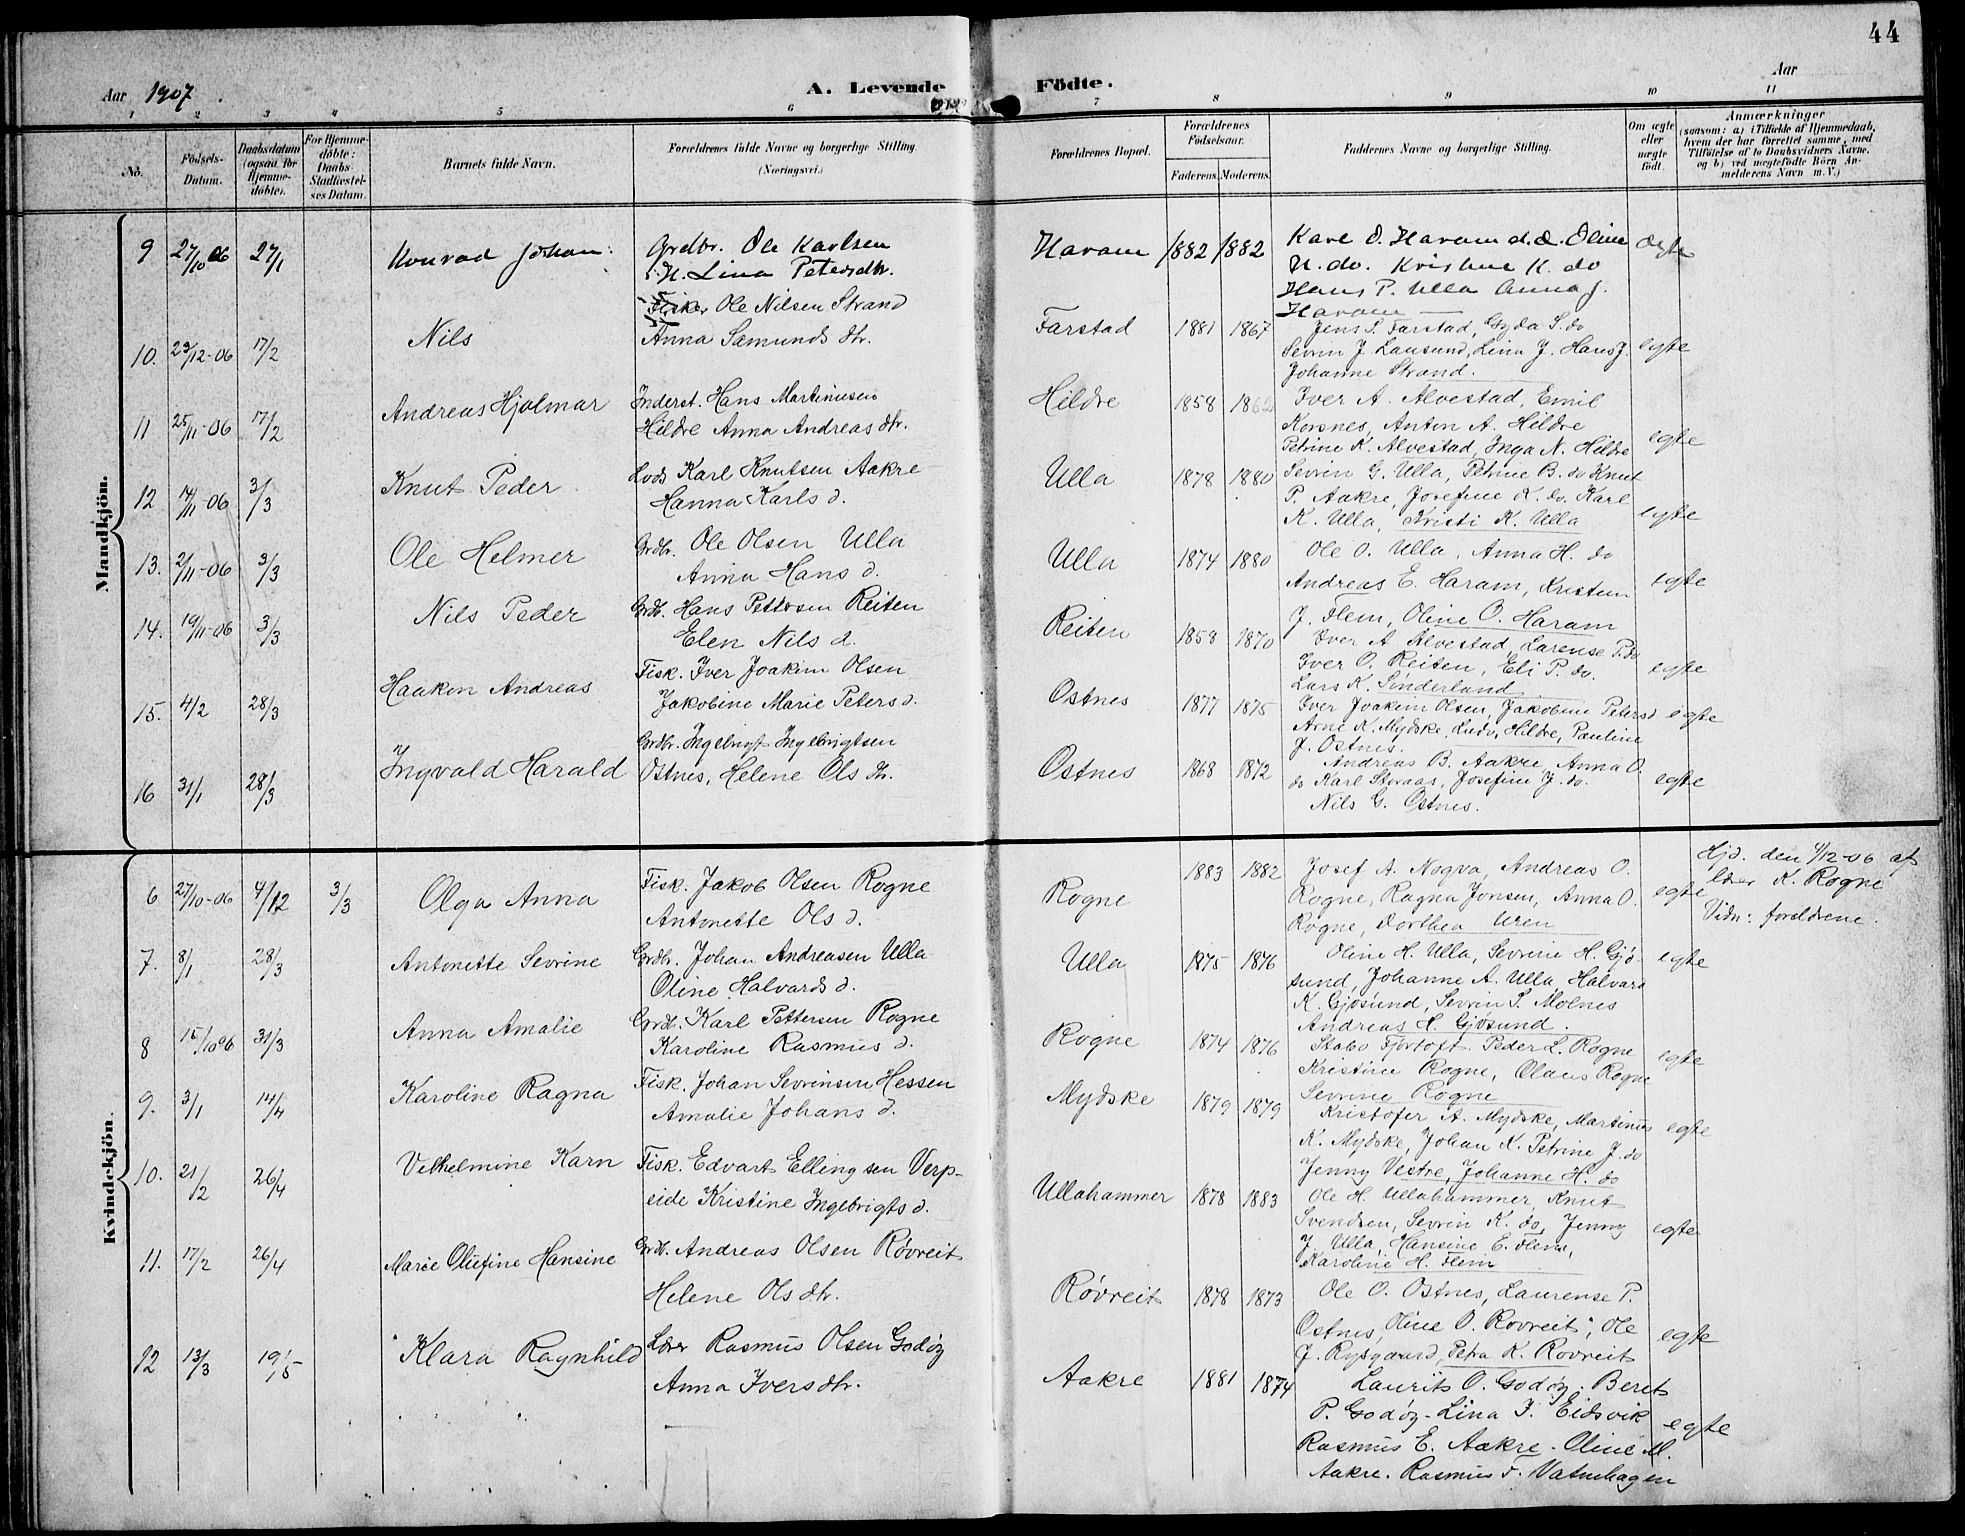 44
Aar 1907.
A. Levende Födte.
Aar
1 2 3 4 5 6 7 8 9 10 11
No.
Födsels-Datum.
Daabsdatum (ogsaa for Hjemme-döbte).
For Hjemme-döbte: Daabs Stadfæstel-ses Datum.
Barnets fulde Navn.
Forældrenes fulde Navne og borgerlige Stilling (Næringsvei.)
Forældrenes Bopæl.
Forældrenes Födselsaar.
Faderens. Moderens.
Faddernes Navne og borgerlige Stilling.
Om ægte eller uægte födt.
Anmærkninger
(saasom: a) i Tilfælde af Hjemmedaab,
hvem der har forrettet samme, med
Tilföielse af to Daabsvidners Navne.
og b) ved uægtefödte Börn An-
melderens Navn m. V.)
Mandkjön.
9 27/10 06 27/1 Konrad Johan. Grdbr. Ole Karlsen
H. Lina Petersdtr. Haram 1882 1882 Karl O. Haram d.æ. Oline
N. do. Kristine K. do
Hans P. Ulla Anna J.
Haram ægte
10. 23/12-06 17/2 Nils Fisker Ole Nilsen Strand
Anna Samunds dtr. Farstad 1881 1867 Jens S. Farstad, Gyda S. do
Sevrin J. Lausund, Lina J. Hans J.
Johanne Strand. egte
11 25/11-06 17/2 Andreas Hjalmar Inderst. Hans Martinusen
Hildre Anna Andreas dtr. Hildre 1858 1862 Iver A. Alvestad, Emil
Korsnes, Anton A. Hildre
Petrine K. Alvestad, Inga N. Hildre egte
12 14/11-06 3/3 Knut Peder Lods Karl Knutsen Aakre
Hanna Karls d. Ulla 1878 1880 Sevrin G. Ulla, Petrine B. do Knut
P. Aakre, Josefine K. do. Karl
K. Ulla, Kristi K. Ulla egte
13. 2/11-06 3/3 Ole Helmer Grdbr. Ole Olsen Ulla
Anna Hans d. Ulla 1874 1880 Ole O. Ulla, Anna H. do
Andreas E. Haram, Kristine
J. Flem, Oline O. Haram egte
14. 19/11-06 3/3 Nils Peder Grdb. Hans Pettersen Reiten
Elen Nils d. Reiten 1858 1870 Iver A Alvestad, Larense P. do
Iver O. Reiten, Eli P. do.
Lars K. Sønderland egte
15. 4/2 28/3 Haakon Andreas Fisk. Iver Joakim Olsen
Jakobine Marie Peters d. Ostnes 1877 1875 Iver Joakim Olsen, Jakobine Petersd
Arne K. Mydske, Ludv. Hildre, Pauline
J. Ostnes. egte
16 31/1 28/3 Ingvald Harald Grdbr. Ingebrigt Ingebrigtsen
Ostnes, Helene Ols dtr. Ostnes 1868 1872 Andreas B. Aakre, Anna O.
do Karl Storaas, Josefine J. do.
Nils G. Ostnes. egte
Kvindekjön.
6 27/10-06 4/12 3/3 Olga Anna Fisk. Jakob Olsen Rogne
Antonette Ols d. Rogne 1883 1882 Josef A. Nogva, Andreas O.
Rogne, Ragna Jonsen, Anna O.
Rogne, Dorthea Uren egte Hjd. den 4/12-06 af
lærer K. Rogne
Vidn: foreldrene.
7. 8/1 28/3 Antonette Sevrine Grdbr. Johan Andreasen Ulla
Oline Halvards d. Ulla 1875 1876 Oline H. Ulla, Sevrine H. Gjø-
sund, Johanne A. Ulla, Halvard
K. Gjøsund, Sevrin S. Molnes
Andreas H. Gjøsund. egte
8 15/10 06 31/3 Anna Amalie Grdb. Karl Pettersen Rogne
Karoline Rasmus d. Rogne 1874 1876 Fjortoft. Peder L. Rogne
Kristine Rogne, Olaus Rogne
Sevrine Rogne egte
9. 3/1 14/4 Karoline Ragna Fisk. Johan Sevrinsen Hessen
Amalie Johans d. Mydske 1879 1879 Kristofer A. Mydske, Martinus
K. Mydske, Johan K. Petrine J. do
Jenny Vestre, Johanne H. do egte
10. 21/2 26/4 Vilhelmine Karn Fisk. Edvart Ellingsen Verp-
side Kristine Ingebrigts d. Ullahammer 1878 1883 Ole H. Ullahammer, Knut
Svendsen, Sevrin K. do, Jenny
J. Ulla, Hansine E. Flem,
Karoline H. Flem egte
11. 17/2 26/4 Marie Olufine Hansine Grdb. Andreas Olsen Røvreit
Helene Ols dtr. Røvreit 1878 1873 Ole O. Ostnes, Laurense P.
Ostnes, Oline O. Rovreit, Ole
J. Rysgaard, Petra K. Rovreit egte
12 13/3 19/5 Klara Ragnhild Lærer Rasmus Olsen Godøy
Anna Ivers dtr. Aakre 1881 1874 Laurits O. Godøy. Beret
P. Godøy - Lina I. Eidsvik
Rasmus E. Aakre. Oline M.
Aakre. Rasmus F. Vatnehagen egte